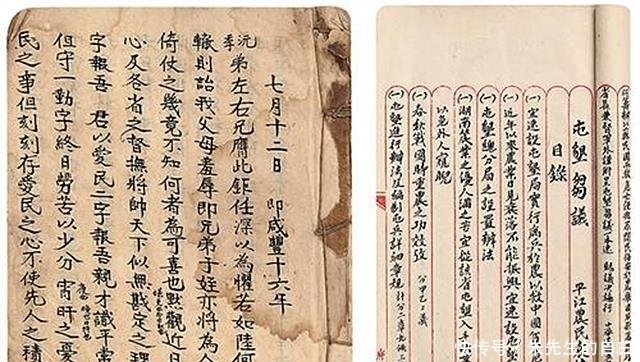 七月十二日 即咸豐十六年
沅季弟左右兄膺此鉅任深以為懼若如陸何
轍則詒我父母羞辱即兄弟子姪亦將為人
倚仗之幾竟不知何者為可喜也默觀近日
心及各省之督撫將帥天下似無戡定之理
字報吾 君以愛民二字報吾 親才識平常
但守一勤字終日勞苦以少分 宵旰之憂
民之事但刻刻存愛民之心不使先人之積
屯墾芻議 平江農民
目錄
(一) 宜速設屯墾局實行寓兵於農以救中國
(一) 近年以來農業日見衰落不能振興宜速設
(一) 屯墾總分局之設置辦法
(一) 湖南農業之優人滿之苦宜從該省屯墾入手
以免外人窺覬
(一) 春秋戰國時重農之功效 分甲乙二義
(一) 屯墾進行辦法及編制屯兵詳細章規 計分二章九項
快传号/朱先生的自白